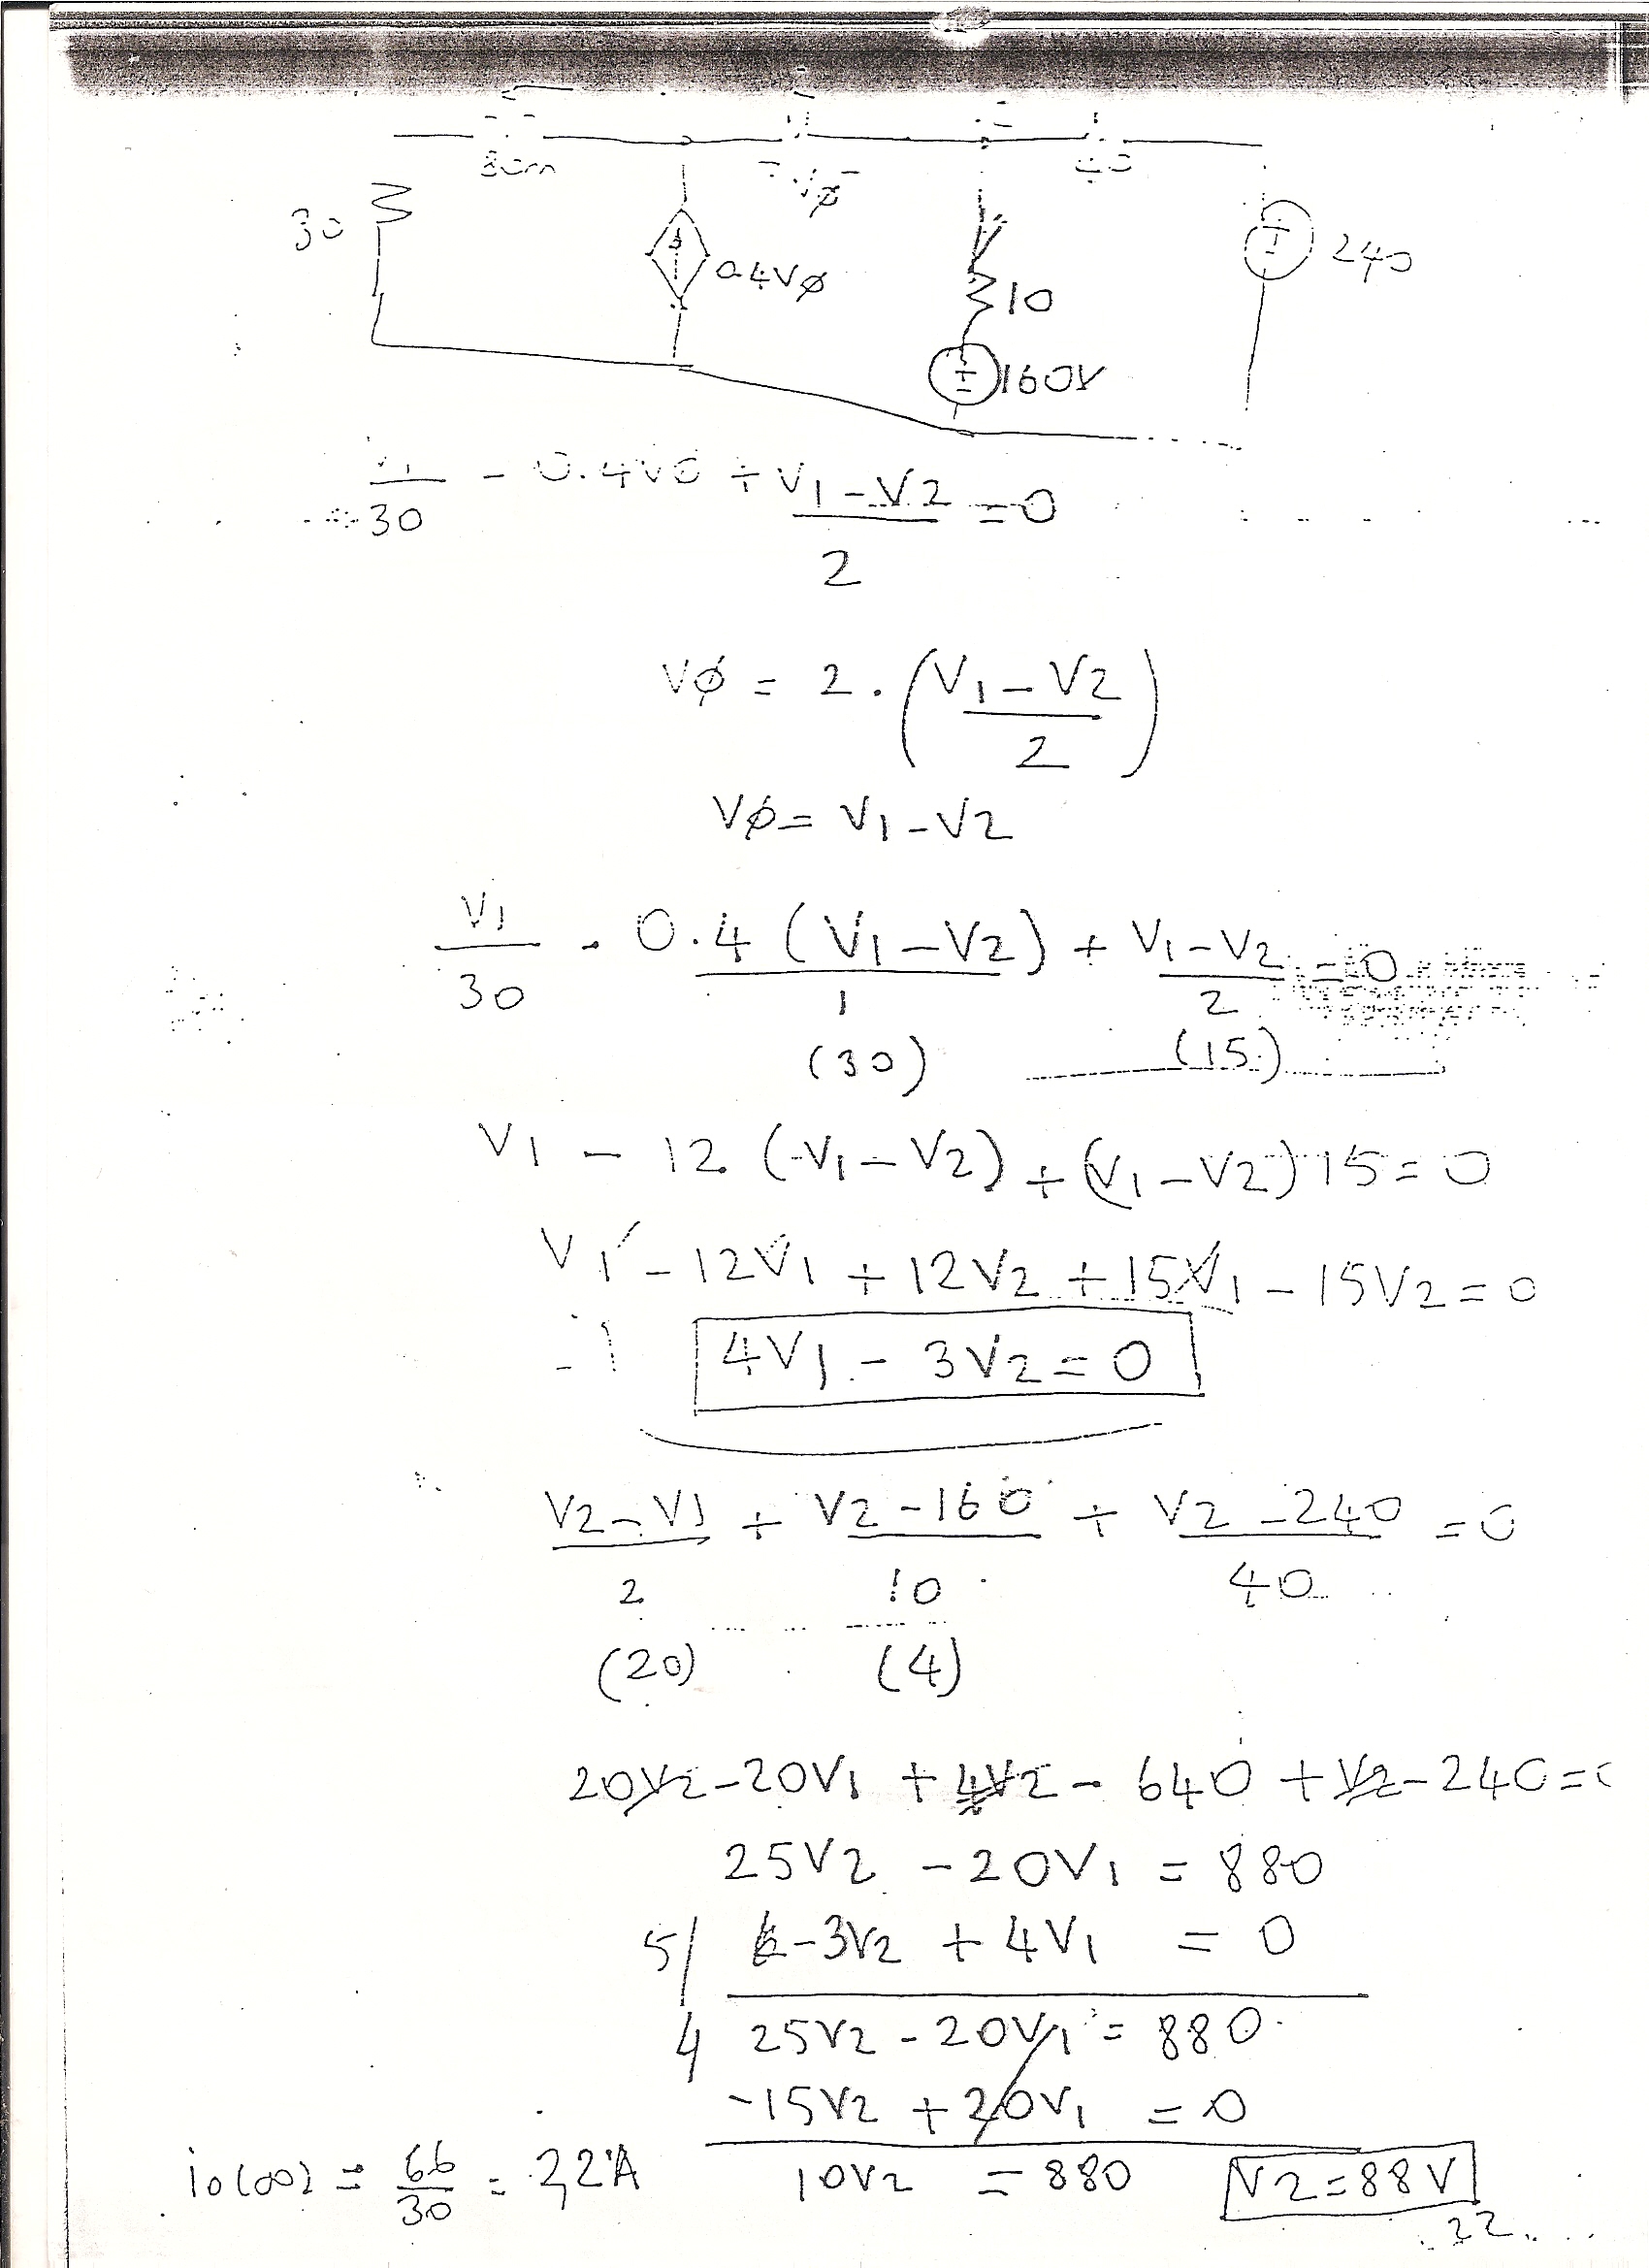 80m
Vø
40
30
0.4Vø
10
240
160V
V1/30 - 0.4Vø + (V1-V2)/2 = 0
Vø = 2.((V1-V2)/2)
Vø = V1-V2
V1/30 - 0.4(V1-V2)/1 + (V1-V2)/2 = 0
(30) (15)
V1 - 12(V1-V2) + (V1-V2)15 = 0
V1 - 12V1 + 12V2 + 15V1 - 15V2 = 0
4V1 - 3V2 = 0
(V2-V1)/2 + (V2-160)/10 + (V2-240)/40 = 0
(20) (4)
20V2 - 20V1 + 4V2 - 640 + V2 - 240 = 0
25V2 - 20V1 = 880
5/ -3V2 + 4V1 = 0
4 25V2 - 20V1 = 880
-15V2 + 20V1 = 0
io(∞) = 66/30 = 2,2A 10V2 = 880 V2 = 88V
22